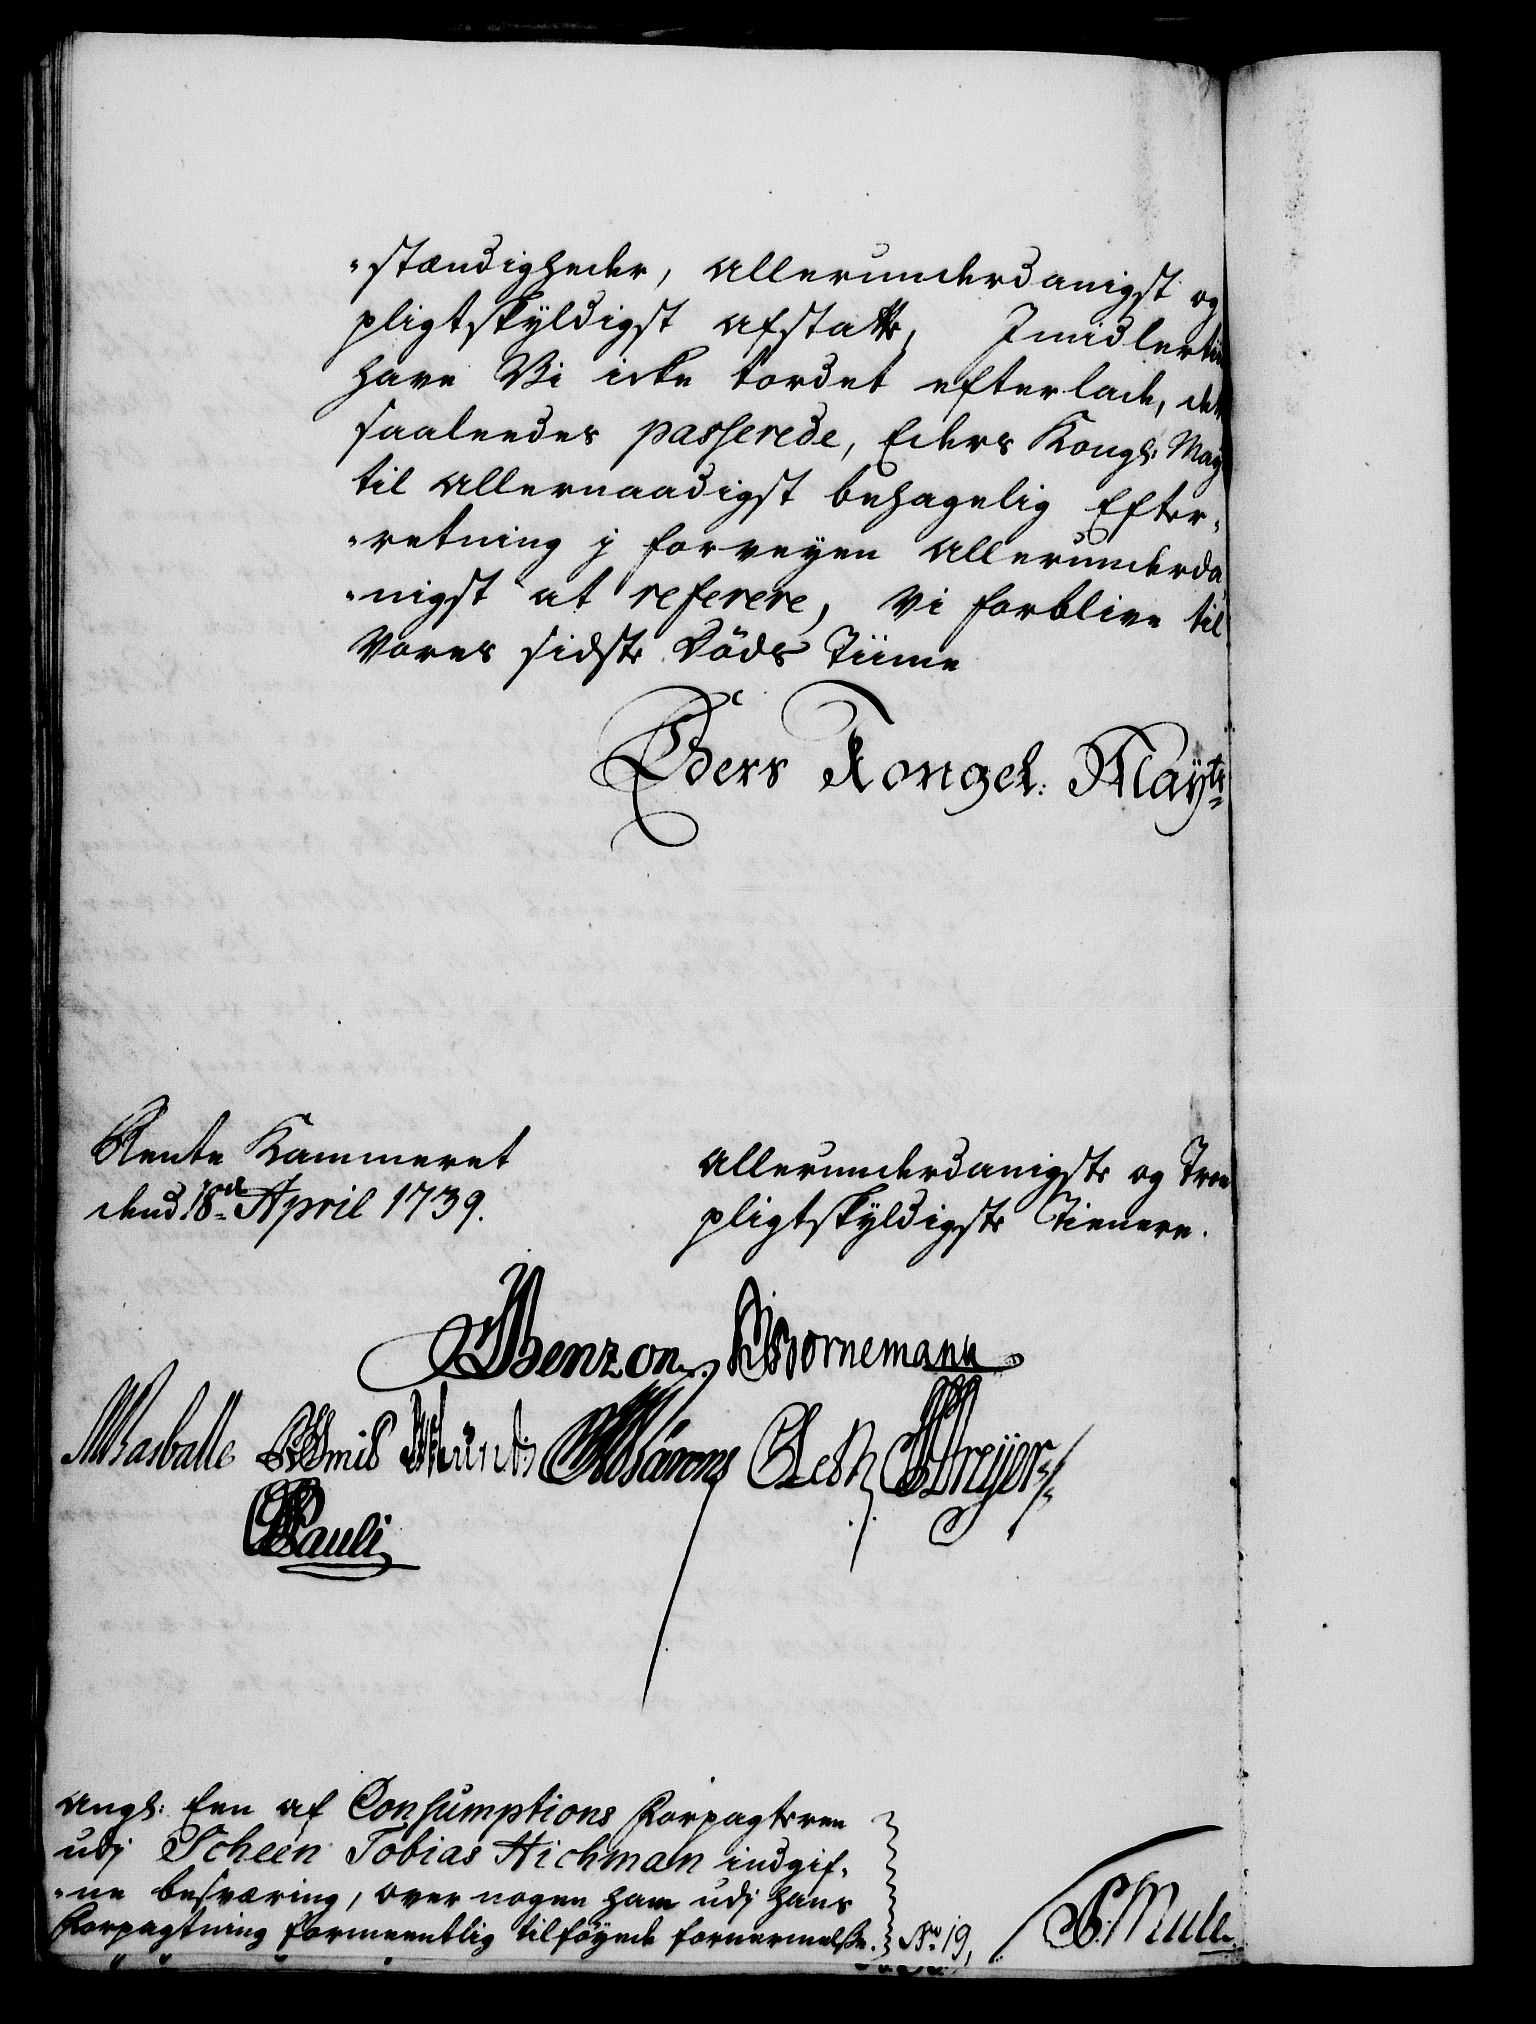 -stændigheder, allerunderdanigst og
pligtskyldigst afstatte, Imidlertiid
have Vi icke tordet efterlade, dette
saaleedes passerede, Eders Kongl: May
til allernaadigst behagelig Efter-
-retning j forveyen allerunderda
-nigst at referere, Vi forblive til
Vores sidste Döds Tiime
Eders Kongel: Mayts
Rente Kammeret
dend 18de April 1739.
allerunderdanigste og Troe
pligtskyldigste Tienere.
Benzon. Bornemann
Basballe Smid Munch Bärens Lesth Dreyer
Pauli
angl: Een af Consumptions Forpagteren
udj Scheen Tobias Hichman indgif-
-ne besværing, over nogen ham udj hans
Forpagtning formeentlig tilföyede fornermelße. No 19,
P: Mule